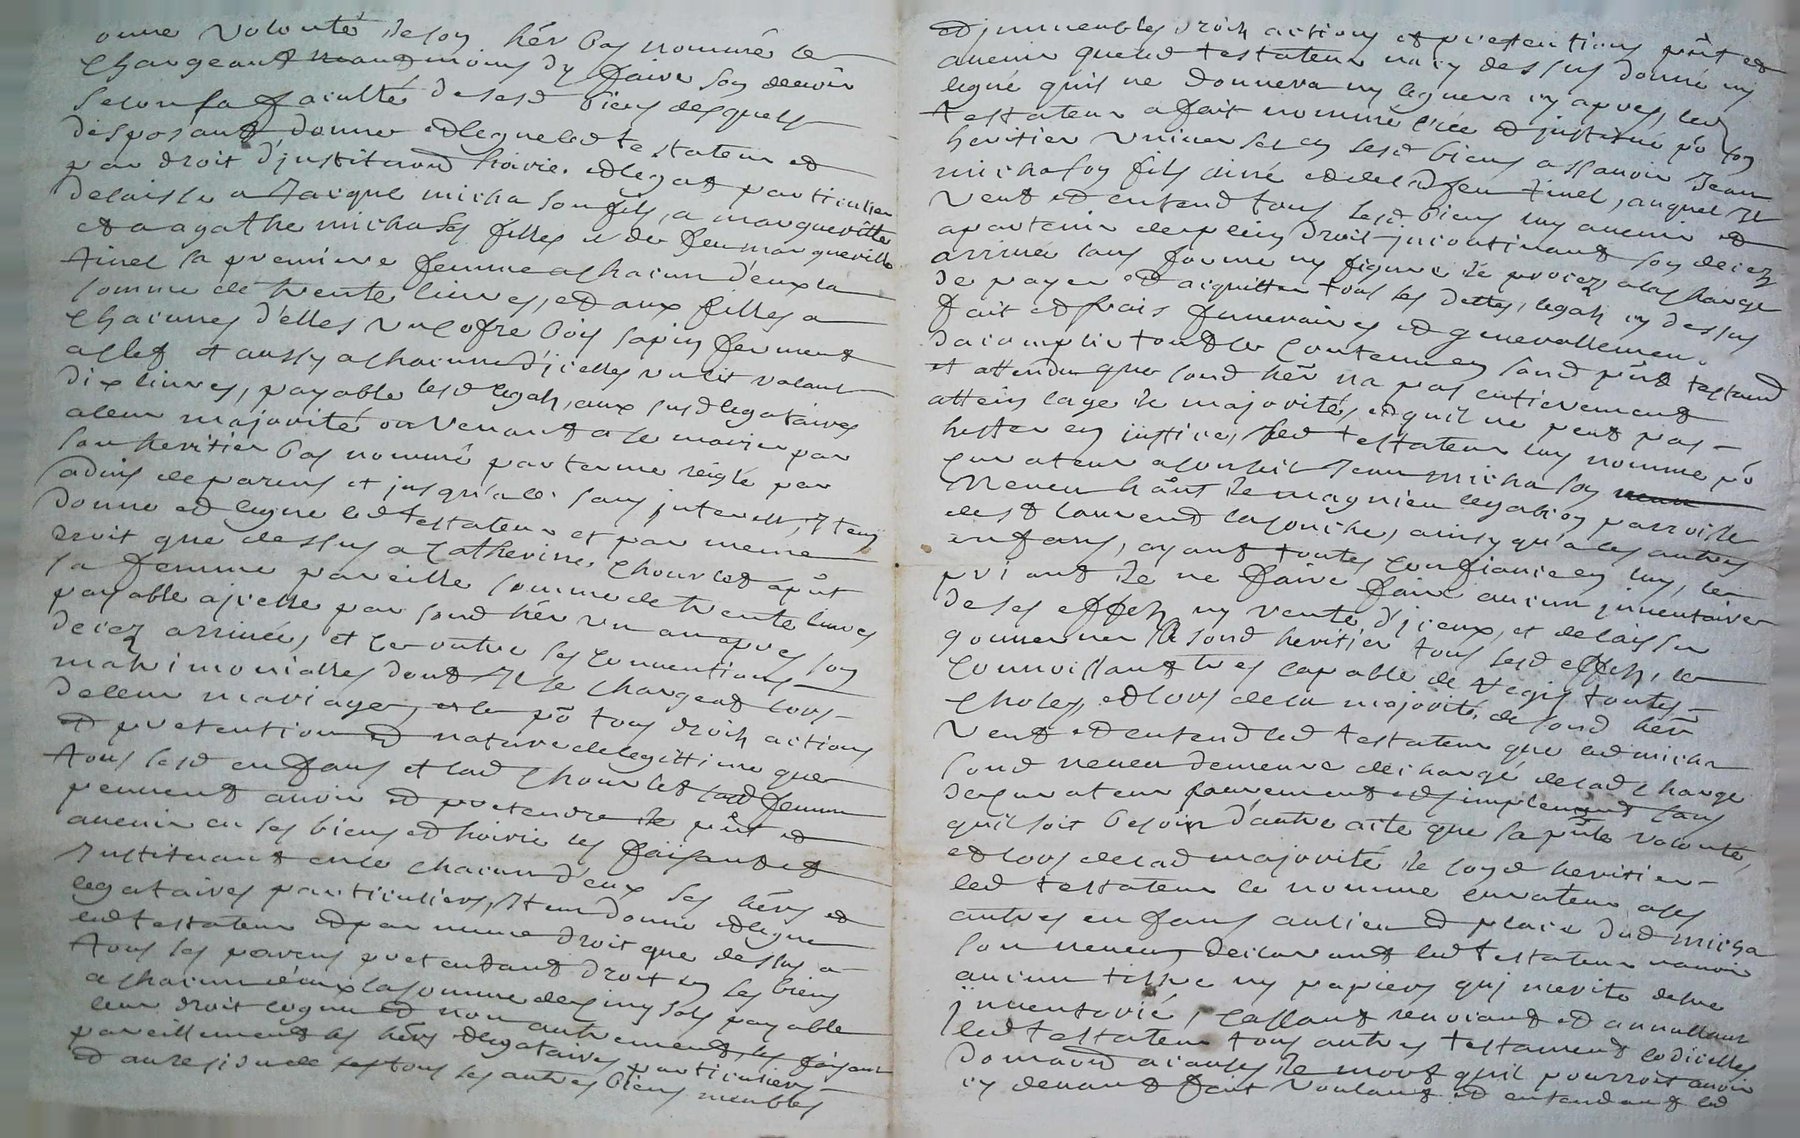 bonne volonté de son hér bas nommé le
chargeant neantmoins dy faire son devoir
selon sa faculté de sesd biens desquels
disposant donne et legue led testateur et
par droit d'institution hoirie et legat particulier
delaisse a Jacque micha son fils, a margueritte
et a agathe micha ses filles et de feu margueritte
tinel sa premiere femme a chacun d'eux la
somme de trente livres, et aux filles a
chacunes d'elles un cofre bois sapin fermant
a clef et aussy a chacune d'icelles un lit valant
dix livres, payable lesd legatz, aux susd legataires
a leur majorité ou venant a se marier par
son heritier bas nommé par terme réiglé par
advis de parens et jusqu'alors sans interest, Item
donne et legue led testateur et par meme
droit que dessus a Catherine Chourlet a pñt
sa femme pareille somme de trente livres
payable a icelle par sond hér un an apres son
decez arrivée, et ce outre ses conventions
matrimonialles dont Il se chargeat lors
de leur mariage, et ce pō tous droitz actions
et pretention et nature de legittime que
tous lesd enfans et lad Chourlet sad femme
peuvent avoir et pretendre de pñt et
avenir en ses biens et hoirie les faisant et
Instituant en ce chacun d'eux ses hérs et
legataires particuliers, Item donne et legue
led testateur et par meme droit que dessus a
tous ses parens pretendant droit en ses biens
a chacun d'eux la somme de cinq sols payable
leur droit cognu et non autrement, les faisant
pareillement ses hérs et legataires particuliers
et au residu de ses tous ses autres biens meubles
et immeubles droitz actions et pretentions pñt et
avenir que led testateur na cy dessus donné ny
legué quil ne donnera ny leguera cy apres, led
testateur a fait nommé créé et institué pō son
heritier universel en sesd biens assavoir Jean
micha son fils ainé et de lad feu tinel, auquel Il
veut et entend tous sesd biens luy avenir et
apartenir de plein droit incontinant son decez
arrivée sans forme ny figure de procez, a la charge
de payer et aiquitter tous ses dettes, legatz cy dessus
fait et frais funeraires et generallement
d'acomplir tout le contenu en sond pñt testamt
et attendu que sond hér na pas entierement
atteins lage de majorité, et quil ne peut pas
hester en justice, led testateur luy nomme pō
curateur a conseil Jean micha son
neveu hãnt de magnieu le gabion parroisse
de st laurend la conche, ainsy qu'a ses autres
enfans, ayant toutes confiance en luy, le
priant de ne faire faire aucun inventaire
de ses effetz ny vente d'iceux, et delaisser
gouverner a sond heritier tous sesd effetz, le
connoissant tres capable de regir toutes
choses, et lors de la majorité de sond hér
veut et entend led testateur que led micha
sond neveu demeure dechargé de lad charge
de curateur purement et simplement sans
quil soit besoin d'autre acte que sa pñte volonté,
et lors de lad majorité de sond heritier
led testateur le nomme curateur a ses
autres enfans au lieu et place dud micha
son neveu, declarant led testateur navoir
aucun tittre ny papiers qui merite destre
inventorié, cassant revocant et annullant
led testateur tous autres testament codicilles
donnaōn a cause de mort quil pourroit avoir
cy devant fait voulant et entendant led